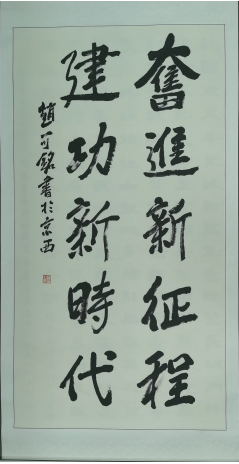 奮進新征程
建功新時代
趙可銘書於京西